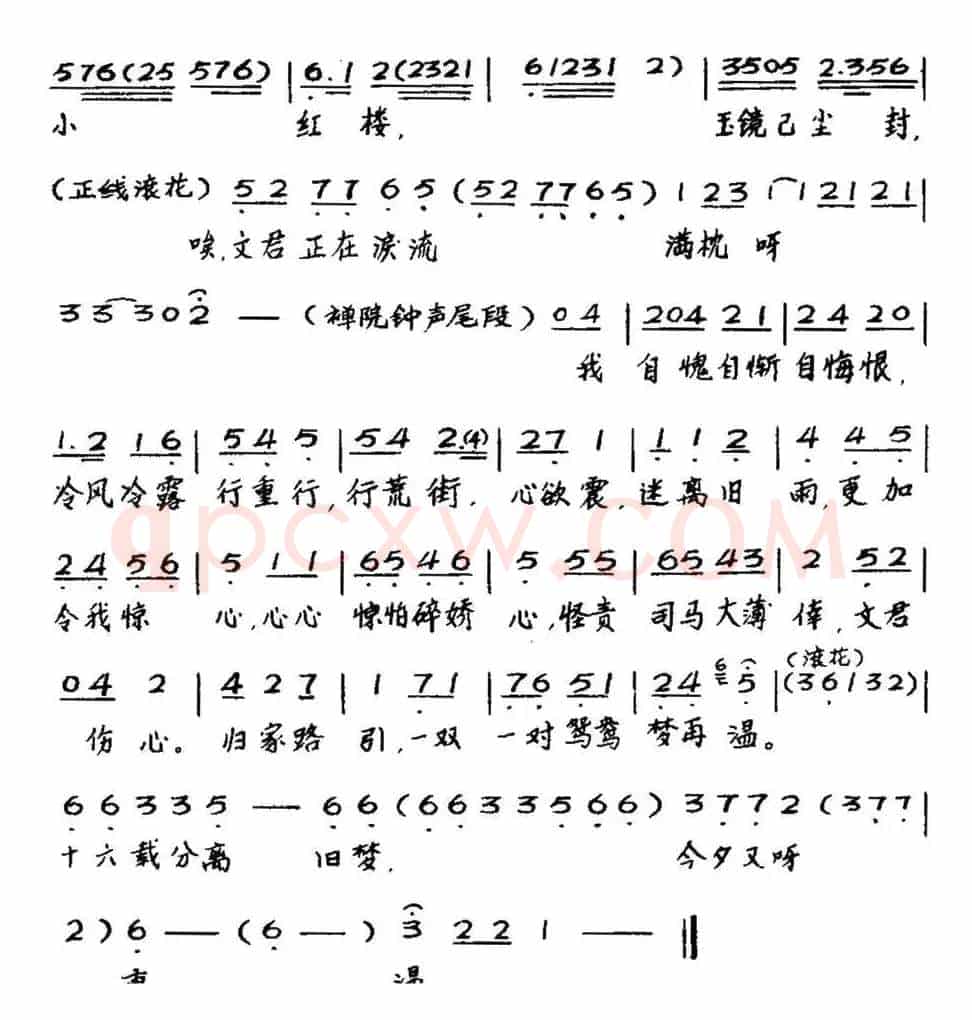 576(25 576) | 6.1 2(2321 | 61231 2) | 3505 2.356 |
小 红 楼, 玉镜已尘 封,
(正线滚花) 52 77 6 5 (52 7765) 1 23 1 12121 |
唉,文君正在淚流 满枕 呀
3 3 3 0 2 — (禅院钟声尾段) 04 | 204 21 | 24 20 |
我 自愧自惭自悔恨,
1.2 16 | 54 5 | 54 2(4) | 27 1 | 1 1 2 | 4 4 5 |
冷风冷露 行重行, 行荒街. 心欲震, 迷离旧 雨, 更加
24 56 | 5 11 | 6546 | 5 55 | 65 43 | 2 52 |
令我惊 心, 心心 惊怕碎娇 心, 怪责 司马大薄 倖, 文君
6 (滚花)
04 2 | 4 2 7 | 1 71 | 76 51 | 24 5 | (36132) |
伤 心。 归家路 引, 一双 一对鸳鸯 梦再 温。
6 6 3 3 5 — 6 6 (6 6 3 3 5 6 6) 3 7 7 2 (3 7 7 |
十六载分离 旧梦, 今夕又呀
2) 6 — (6 — ) 3 22 1 — ‖
qpcxw.COM